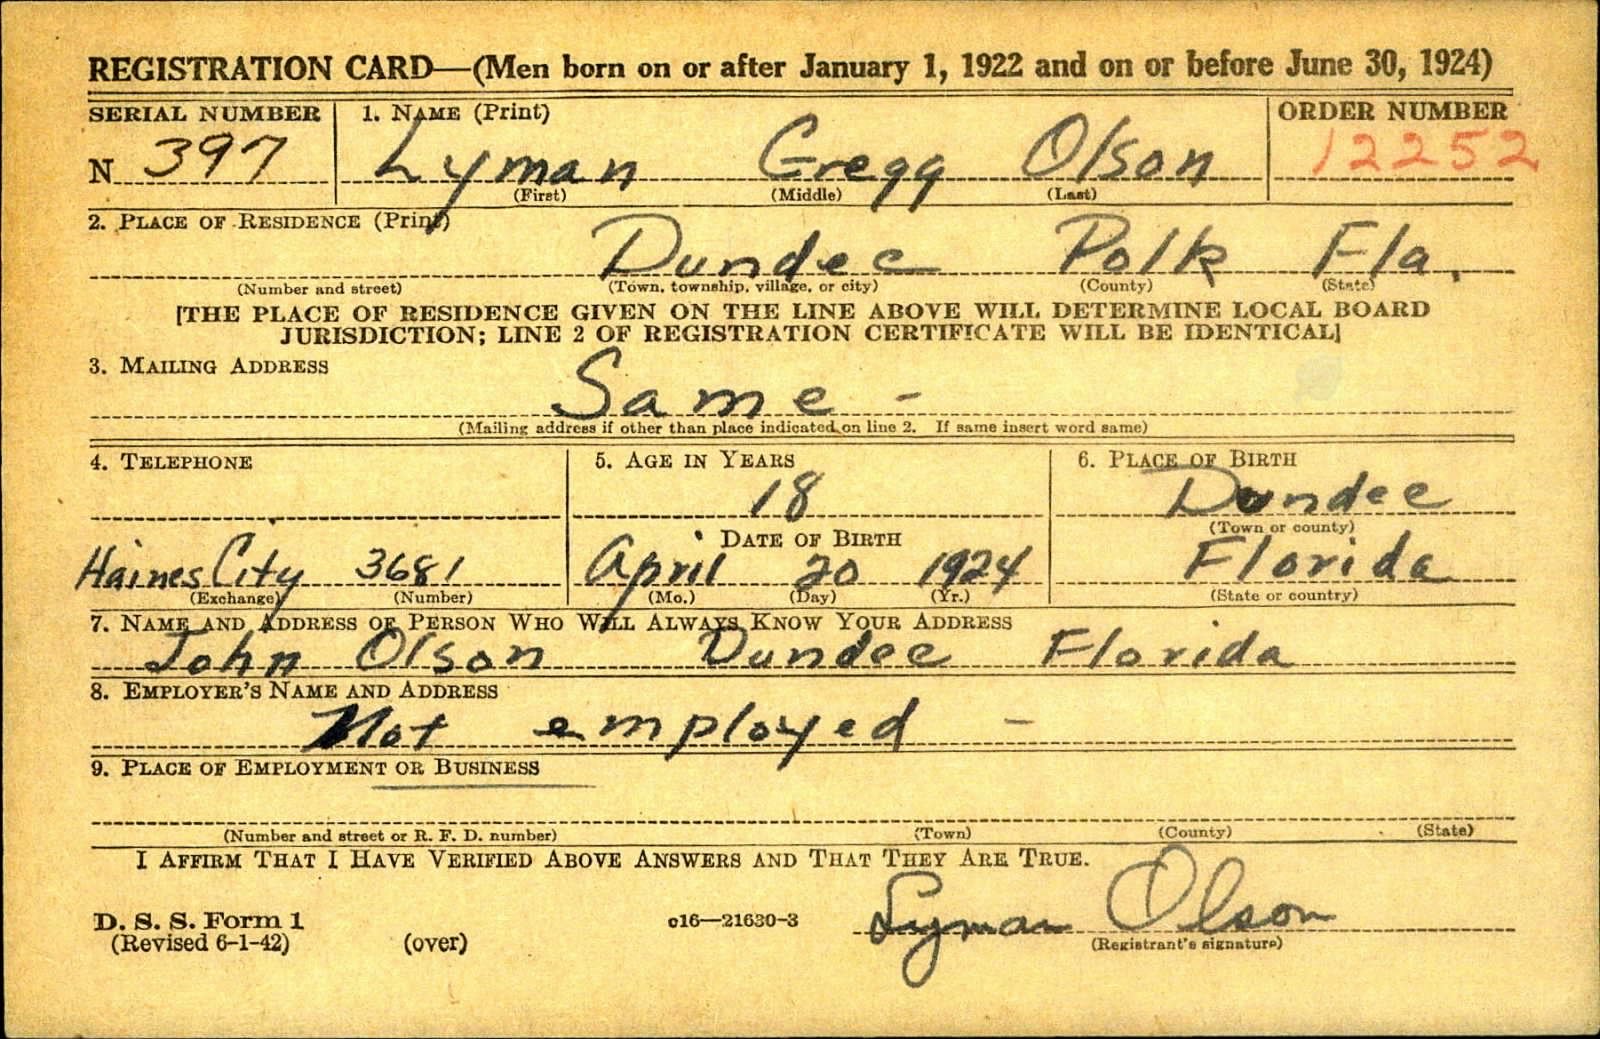 REGISTRATION CARD—(Men born on or after January 1, 1922 and on or before June 30, 1924)
SERIAL NUMBER 1. NAME (Print) ORDER NUMBER
N 397 Lyman Gregg Olson 12252
(First) (Middle) (Last)
2. PLACE OF RESIDENCE (Print)
Dundee Polk Fla.
(Number and street) (Town, township, village, or city) (County) (State)
[THE PLACE OF RESIDENCE GIVEN ON THE LINE ABOVE WILL DETERMINE LOCAL BOARD
JURISDICTION; LINE 2 OF REGISTRATION CERTIFICATE WILL BE IDENTICAL]
3. MAILING ADDRESS
Same -
(Mailing address if other than place indicated on line 2. If same insert word same)
4. TELEPHONE 5. AGE IN YEARS 6. PLACE OF BIRTH
18 Dundee
(Town or county)
DATE OF BIRTH
Haines City 3681 April 20 1924 Florida
(Exchange) (Number) (Mo.) (Day) (Yr.) (State or country)
7. NAME AND ADDRESS OF PERSON WHO WILL ALWAYS KNOW YOUR ADDRESS
John Olson Dundee Florida
8. EMPLOYER'S NAME AND ADDRESS
Not employed -
9. PLACE OF EMPLOYMENT OR BUSINESS
(Number and street or R. F. D. number) (Town) (County) (State)
I AFFIRM THAT I HAVE VERIFIED ABOVE ANSWERS AND THAT THEY ARE TRUE.
D. S. S. Form 1 c16—21630-3 Lyman Olson
(Revised 6-1-42) (over) (Registrant's signature)